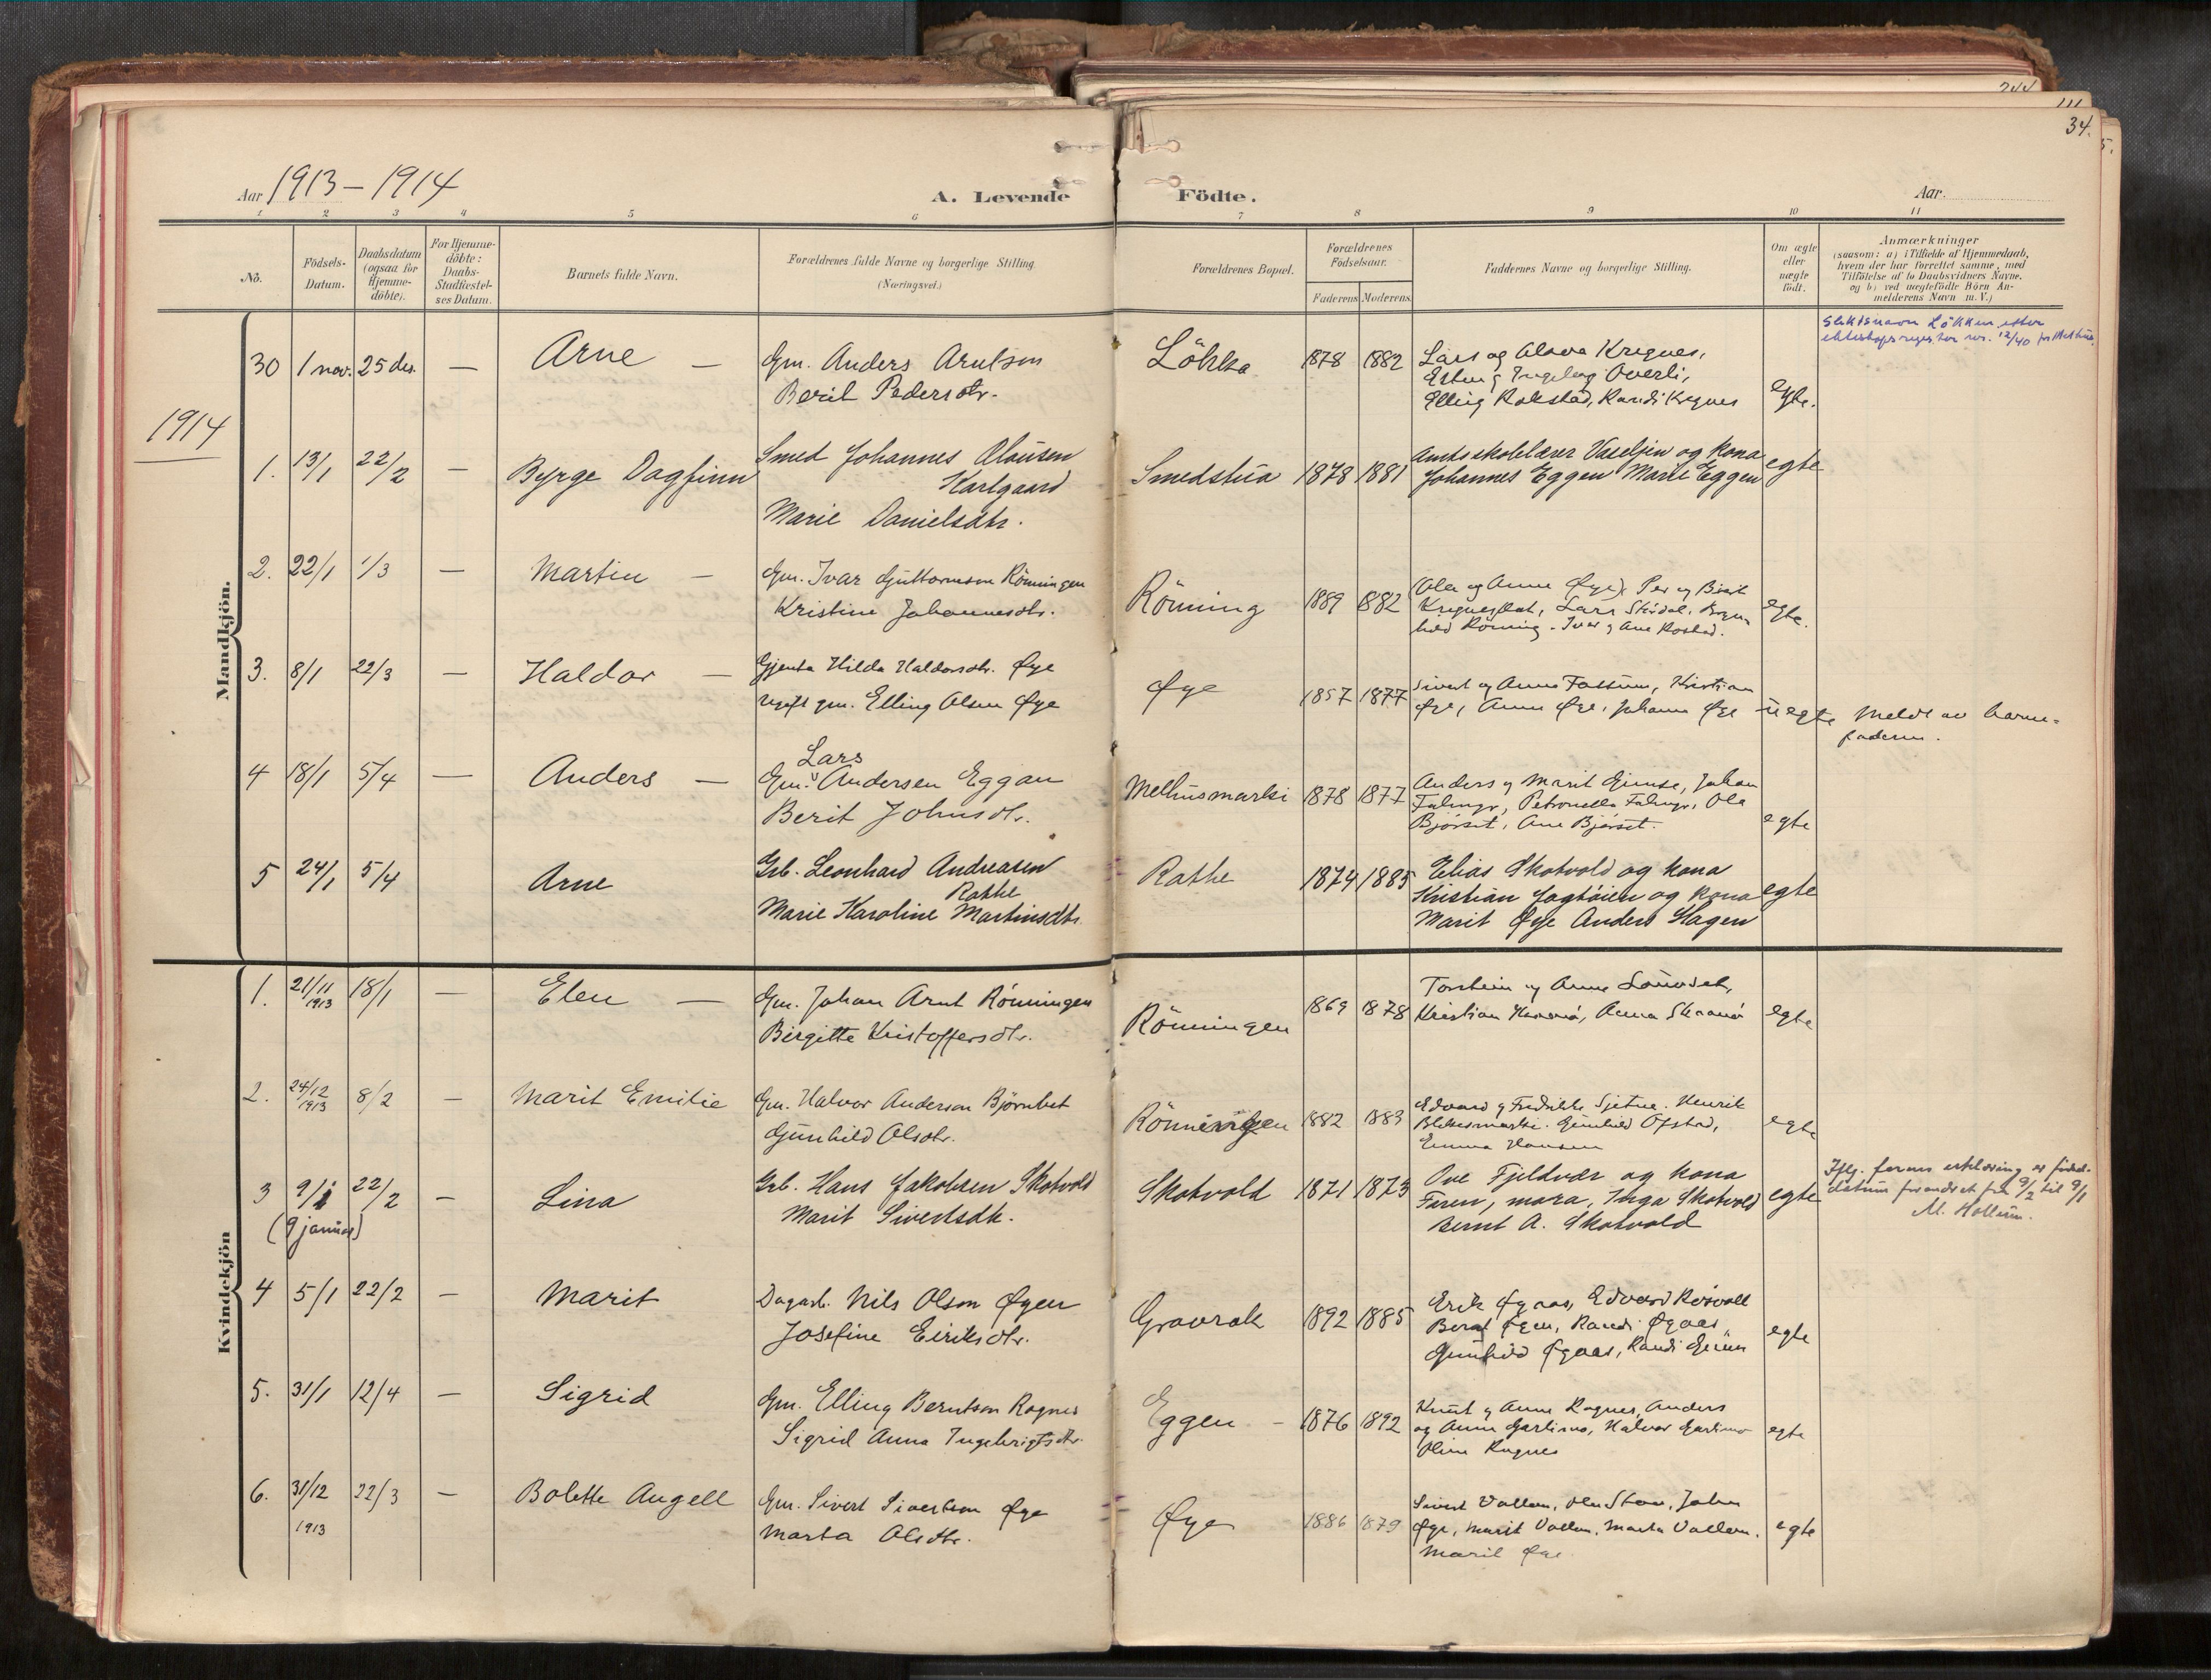 244
111
34.
5.
Aar 1913 – 1914
A. Levende Födte.
Aar.
1 2 3 4 5 6 7 8 9 10 11
No.
Födsels-Datum.
Daabsdatum (ogsaa for Hjemme-döbte).
For Hjemme-döbte: Daabs-Stadfæstel-ses Datum.
Barnets fulde Navn.
Forældrenes fulde Navne og borgerlige Stilling. (Næringsvei.)
Forældrenes Bopæl.
Forældrenes Födselsaar.
Faderens Moderens.
Faddernes Navne og borgerlige Stilling.
Om ægte eller uægte födt.
Anmærkninger
(saasom: a) i Tilfælde af Hjemmedaab,
hvem der har forrettet samme, med
Tilföielse af to Daabsvidners Navne,
og b) ved uægtefödte Börn An-
melderens Navn m. V.)
Mandkjön.
30 1 nov. 25 des. — Arne —
Gm. Anders Arntson
Berit Pedersdtr.
Lökka 1878 1882
Lars og Kregnes,
Esten og Ingeborg Överli,
Elling Rokstad, Randi Kregnes
egte.
Slektsnavn Lökken etter
ekteskapsregister nr. 12/40 for Melhus.
1914
1. 13/1 22/2 — Byrge Dagfinn
Smed Johannes Olausen
Karlgaard
Marie Danielsdtr.
Smedstua 1878 1881
Amtsskolelærer Vaseljen og kona
Johannes Eggen Marit Eggen
egte
2. 22/1 1/3 — Martin —
Gm. Ivar Guttormson Rönningen
Kristine Johannesdtr.
Rönning 1889 1882
(Ola og Anne Øye), Per og Berit
Lars
Rönning. Ivar og Ane Rostad.
egte.
3. 8/1 22/3 — Haldor —
Gjenta Hilda Haldorsdtr. Øye
ugift gm. Elling Olsen Øye
Øye 1857 1877
Sivert og Anne Kristian
Øye, Anne Øye, Johanna Øye
uegte
Meldt av barne-
faderen.
4 18/1 5/4 — Anders —
Lars
Gm. Andersen Eggan
Berit Johnsdtr.
Melhusmarki 1878 1877
Anders og Marit Gimse, Johan
Petronella Ola
Bjørset, Ane Bjørset.
egte
5 24/1 5/4 Arne
Grb. Leonhard Andreasen
Rathe
Marie Karoline Martinsdtr.
Rathe 1874 1885
Elias Skotvold og kona
Kristian Jagtøien og kona
Marit Øye Anders Hagen
egte
Kvindekjön
1. 21/11 1913 18/1 — Elen —
Gm. Johan Arnt Rönningen
Birgitte Kristoffersdtr.
Rönningen 1869 1878
Torstein og Anne
Kristian Anna
egte
2. 24/12 1913 8/2 — Marit Emilie
Gm. Halvor Anderson Björnbet
Gunhild Olsdtr.
Rönningen 1882 1883
Edvard og Fredrikke Sjetne. Henrik
Gunhild Ofstad,
Emma Hansen
egte
3 9/1 22/2 — Lina
(9 januar)
Grb. Hans Jakobsen Skotvold
Marit Sivertsdtr.
Skotvold 1871 1873
Ove Fjeldvær og kona
Faren, mora, Inga Skotvold
Bernt A. Skotvold
egte
Iflg. farens erklæring er födsels-
datum forandret fra 9/2 til 9/1
M. Hollum.
4 5/1 22/2 — Marit
Dagarb. Nils Olson Øyen
Josefine Eiriksdtr.
Gravrok 1892 1885
Erik Øyaas, Edvard Rösvoll
Berat Øyen, Randi Øyaas
Gunhild Øyaas, Randi
egte
5. 31/1 12/4 — Sigrid
Gm. Elling Berntson Rognes
Sigrid Anna Ingebrigtsdtr.
Eggen – 1876 1892
Knut og Anne Rognes, Anders
og Anne Halvor
Oline Rognes
egte
6. 31/12 1913 22/3 — Bolette Angell
Gm. Sivert Sivertson Øye
Marta Olsdtr.
Øye 1886 1879
Sivert Vollan, John
Øye, Marit Vollan, Marta Vollan,
Marit Øye.
egte